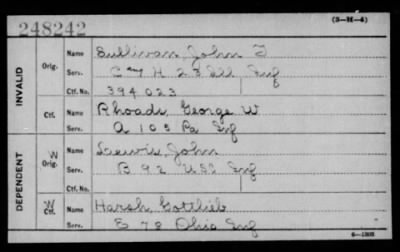 248242
(3-H-4)
INVALID
Orig.
Name Sullivan, John
Serv. Co H 23 Ill Inf
Ctf. No. 394023
Ctf.
Name Rhoads, George W
Serv. A 105 Pa Inf
DEPENDENT
W
Orig.
Name John
Serv. B 92 Inf
Ctf. No.
W
Ctf.
Name Harsh, Gottlieb
Serv. E 78 Ohio Inf